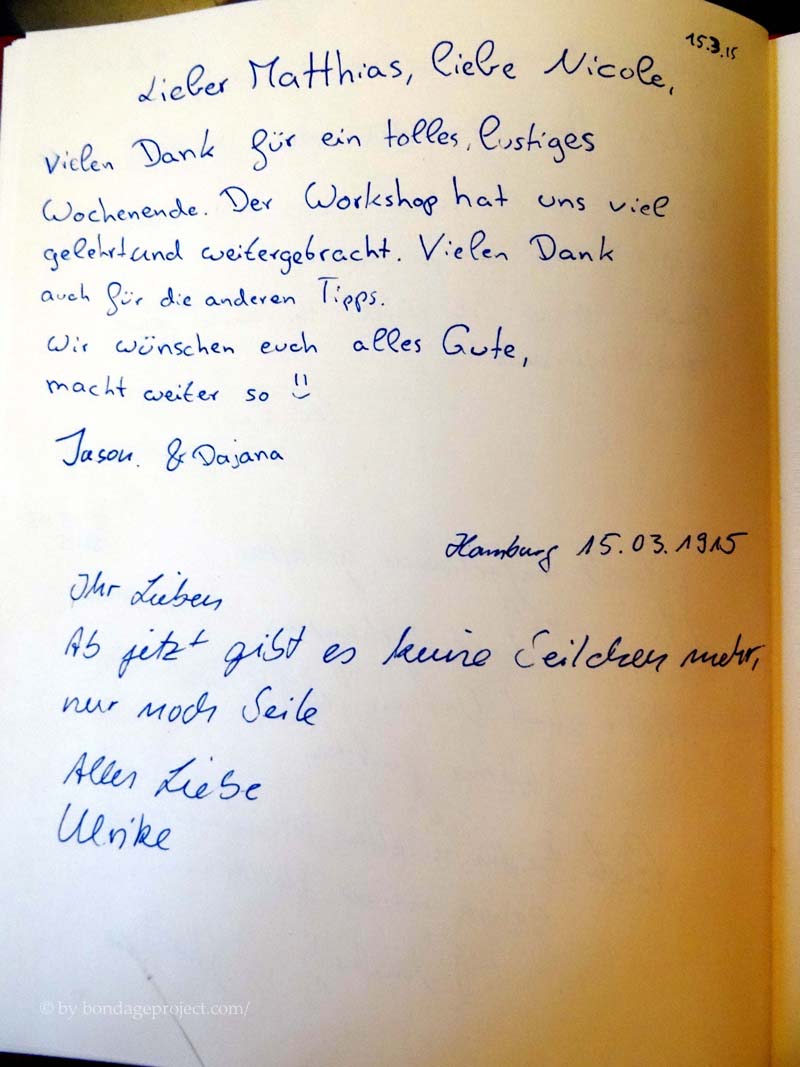 15.3.15
Lieber Matthias, liebe Nicole,
Vielen Dank für ein tolles, lustiges
Wochenende. Der Workshop hat uns viel
gelehrt und weitergebracht. Vielen Dank
auch für die anderen Tipps.
Wir wünschen euch alles Gute,
macht weiter so
Jason & Dajana
Hamburg 15.03.1915
Ihr Lieben
Ab jetzt gibt es keine Seilchen mehr,
nur noch Seile
Alles Liebe
Ulrike
© by bondageproject.com/